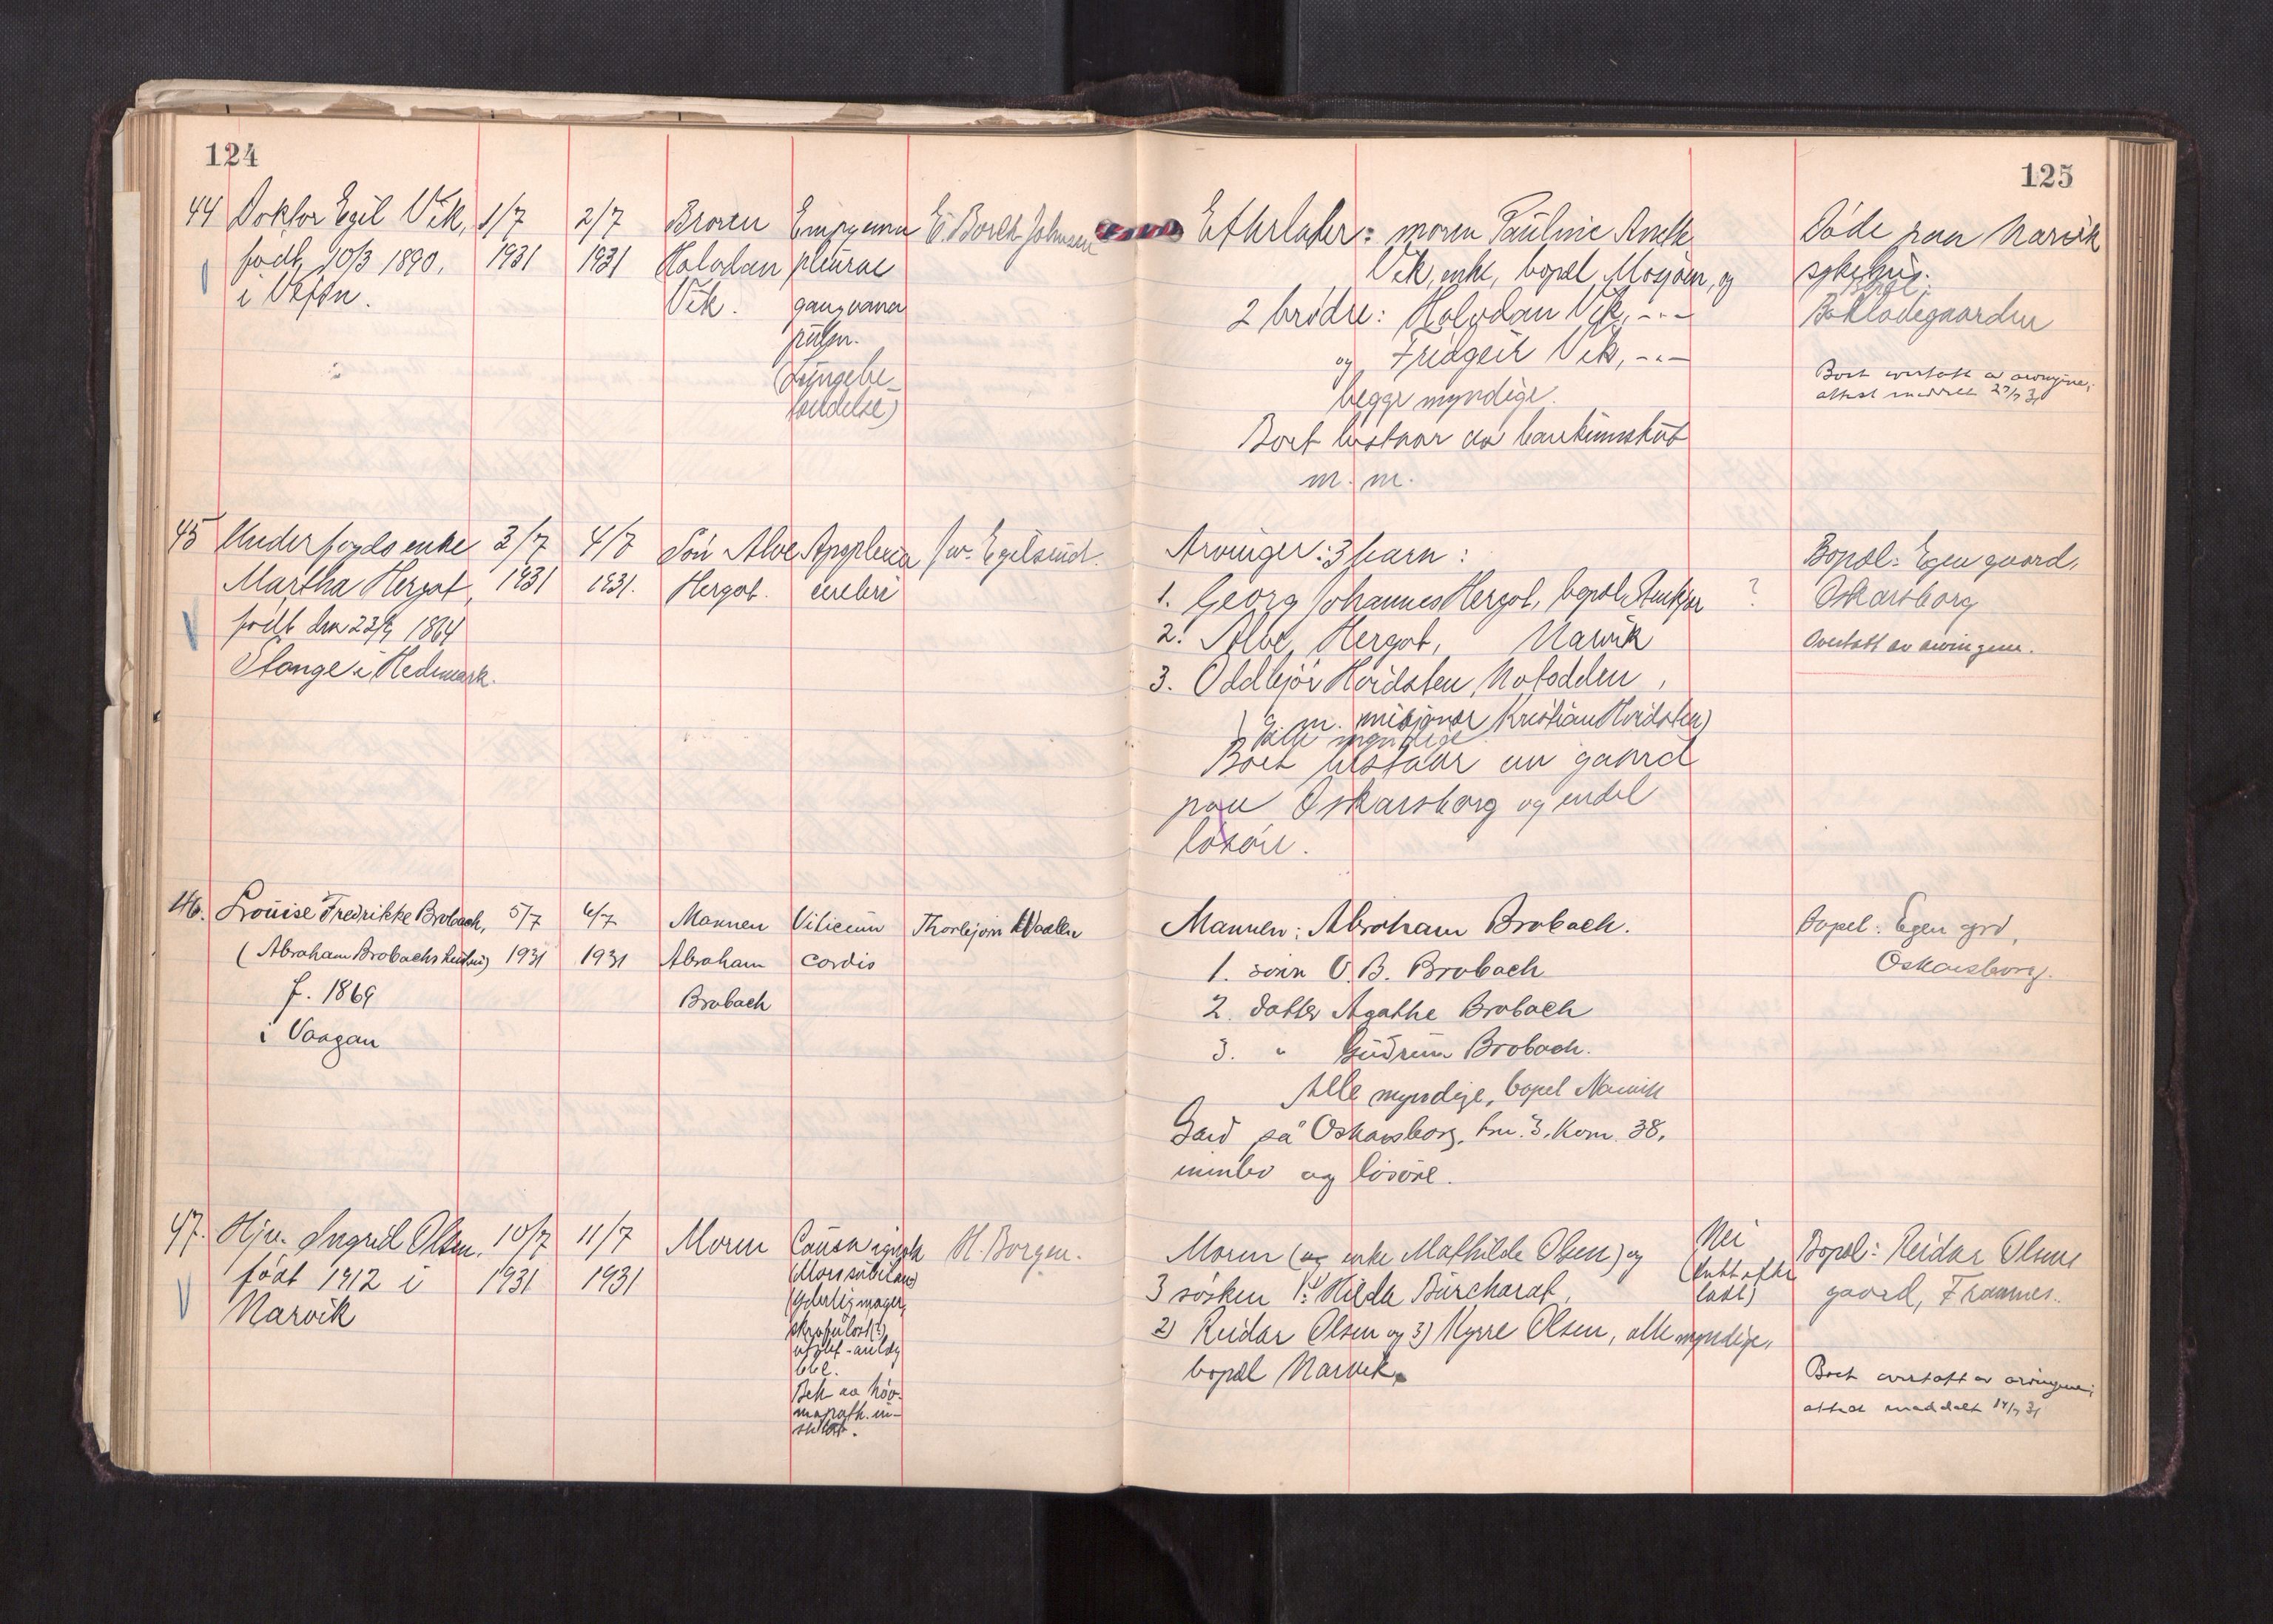 124
44 Doktor Egil Vik, 1/7 2/7 Broren Empyema E. Borch-Johnsen
født 10/3 1890, 1931 1931 Halvdan pleurae
i Vefsn. Vik. gangraena
pulm.
(Lungebe-
tendelse)
45 Underfogds enke 3/7 4/7 Søn Alve Apoplexia Jw. Egilsrud.
Martha Hergot, 1931 1931. Hergot. cerebri
født den 1864
Stange i Hedemark.
46. Louise Fredrikke Brobach, 5/7 6/7 Mannen Viticum Thorbjørn Waalen
(Abraham Brobachs hustru) 1931 1931 Abraham cordis
f. 1869 Brobach
i Vaagan
47. Hju. Ingrid Olsen, 10/7 11/7 Moren Causa ignota H. Borgen.
født 1912 i 1931 1931 (Mors subitanea)
Narvik (Yderlig mager,
skrofuløst(?)
ble.
Beh av
125
Efterlater: moren Pauline Anette Døde paa Narvik
Vik, enke, bopæl Mosjøen, og sykehus.
2 brødre: Halvdan Vik, -"- Bokladegaarden
og Fridgeir Vik, -"-
begge myndige. Boet overtatt av arvingene,
attest meddelt
Boet bestaar av bankinnskut
m. m.
Arvinger: 3 barn: Bopæl: Egen gaard,
1. Georg Johannes Hergot, bopæl ? Oskarsborg
2. Alve Hergot, Narvik Overtatt av arvingene.
3. Oddbjør Hvidsten, Notodden,
g. m. misjonær Kristian Hvidsten)
alle myndige
Boet bestaar av gaard
paa Oskarsborg og endel
løsøre.
Mannen: Abraham Brobach. Bopel: Egen grd,
1. sønn O. B. Brobach Oskarsborg.
2. datter Agathe Brobach
3. " Gudrun Brobach.
Alle myndige, bopel Narvik
Gard på Oskarsborg, bnr. 3, Kom. 38,
innbo og løsøre.
Moren (og enke Mathilde Olsen) og Nei Bopæl: Reidar Olsens
3 søsken 1. Hilda Burchardt, (intet efter gaard, Framnes.
latt)
2) Reidar Olsen og 3) Myrre Olsen, alle myndige,
bopæl Narvik.
Boet overtatt av arvingene;
attest meddelt